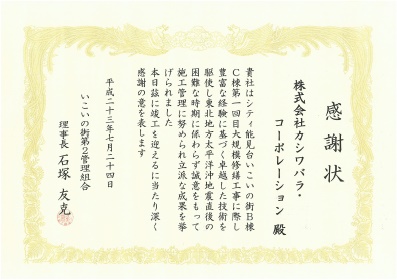 感謝状
株式会社カシワバラ・
コーポレーション 殿
貴社はシティ能見台いこいの街B棟
C棟第一回目大規模修繕工事に際し
豊富な経験に基づく卓越した技術を
駆使し東北地方太平洋沖地震直後の
困難な時期に係わらず誠意をもって
施工管理に努められ立派な成果を挙
げられました
本日茲に竣工を迎えるに当たり深く
感謝の意を表します
平成二十三年七月二十四日
いこいの街第2管理組合
理事長 石塚 友克